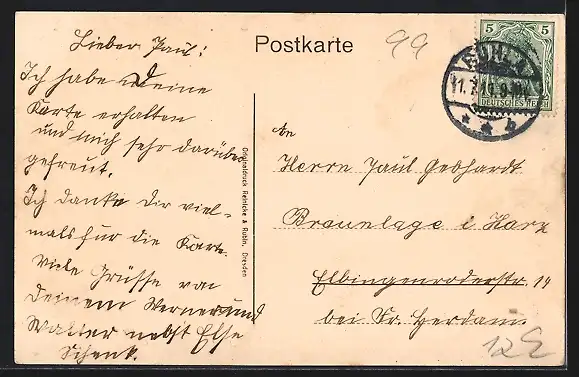 Postkarte
99
Lieber Paul!
Ich habe Deine
Karte erhalten
und mich sehr darüber
gefreut.
Ich danke Dir viel-
mals für die Karte.
Viele Grüsse von
Deinem Werner und
Walter nebst Else
Schenk.
Originaldruck Reinicke & Rubin, Dresden
RUHLA
11.7.11.9-10
* * b
5 5
DEUTSCHES REICH
An
Herrn Paul Gebhardt
Braunlage i. Harz
Elbingeroderstr. 14
bei Fr. Herdam.